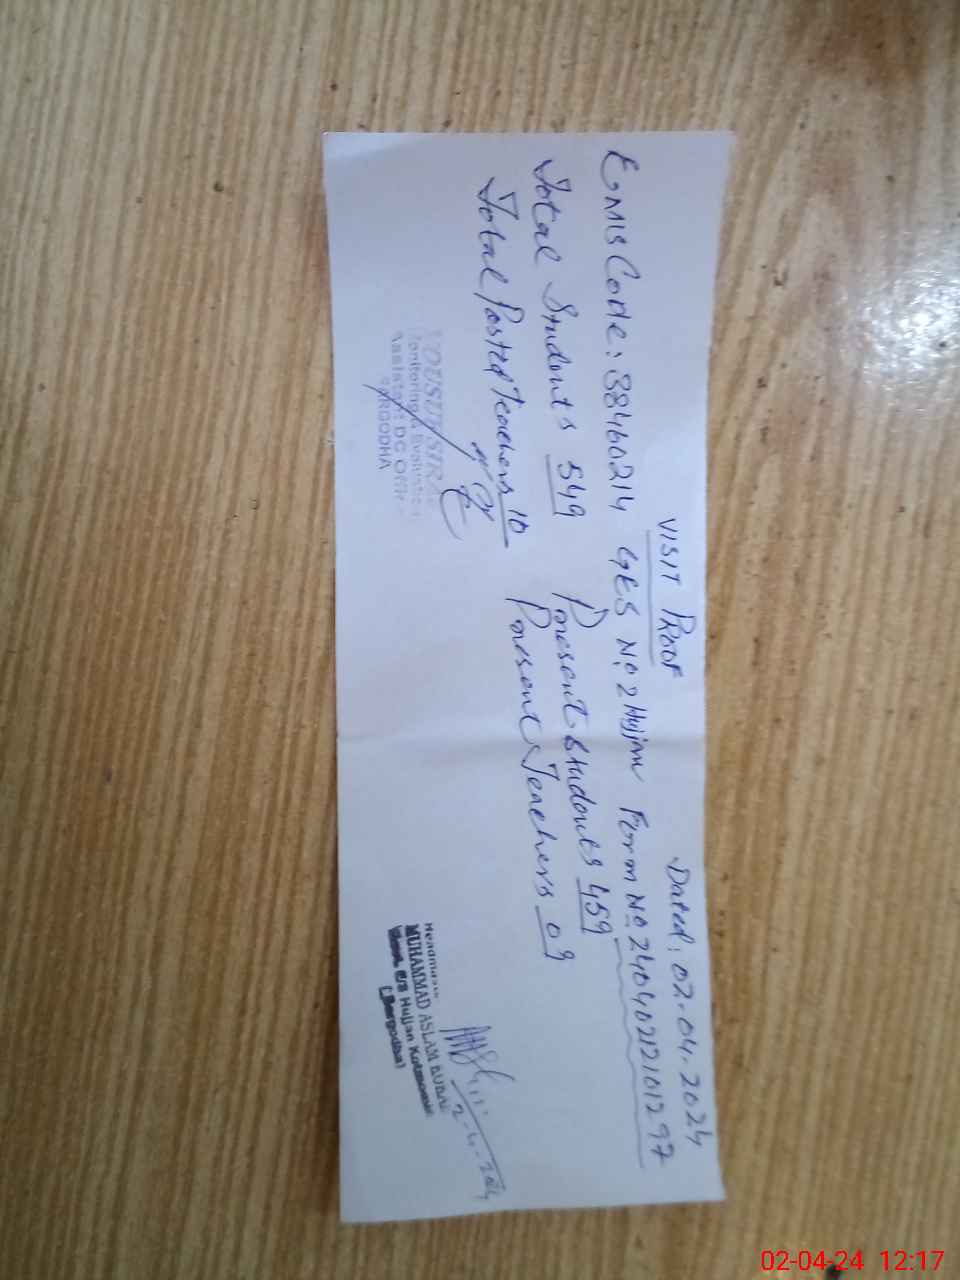 VISIT PROOF
Dated: 02.04.2024
EMIS Code: 38460214 GES No. 2 Hujjan Form No 24040212101297
Total Students 549 Present Students 459
Total Posted Teachers 10 Present Teachers 09
Monitoring & Evaluation
Assistant DC Office
SARGODHA
2-4-2024
MUHAMMAD ASLAM
E/S Hujjan Kotmomin
(Sargodha)
02-04-24 12:17